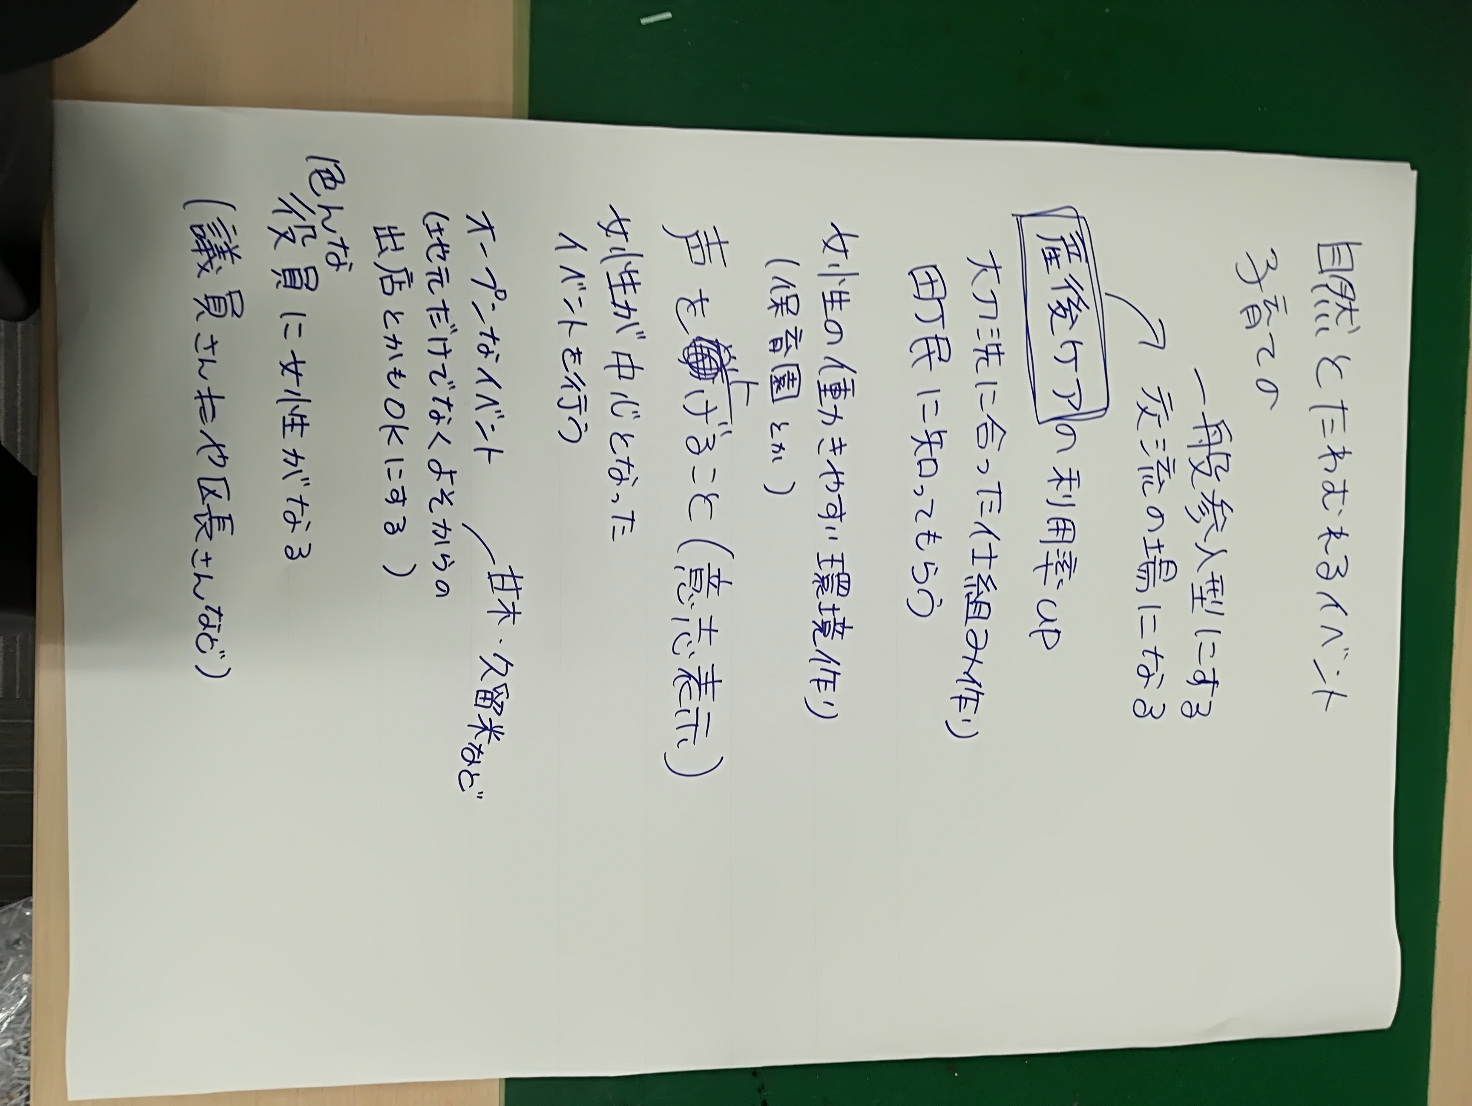 自然とたわむれるイベント
子育ての
一般参入型にする
交流の場になる
産後ケアの利用率up
大刀洗に合った仕組み作り
町民に知ってもらう
女性の働きやすい環境作り
(保育園とか)
声を上げること(意志表示)
女性が中心となった
イベントを行う
オープンなイベント
甘木・久留米など
(地元だけでなくよそからの
出店とかもOKにする)
色んな
役員に女性がなる
(議員さんたや区長さんなど)